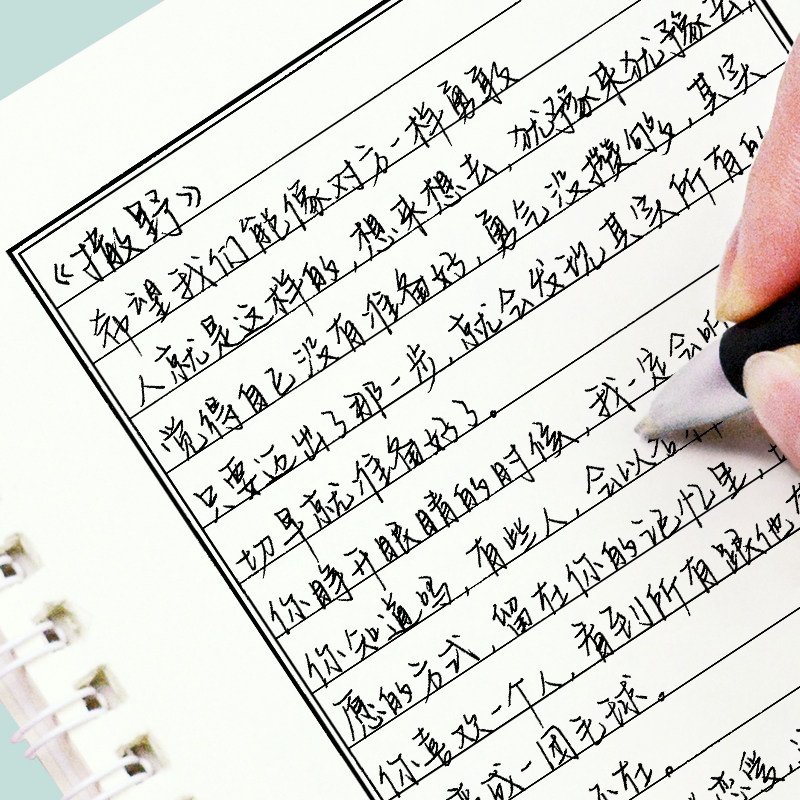 《撒野》
希望我们能像对方一样勇敢
人就是这样的，想来想去，犹豫来犹豫去，
觉得自己没有准备好，勇气没攒够，其实
只要迈出了那一步，就会发现其实所有的
切早就准备好了。
你睁开眼睛的时候，我一定会听
你知道吗，有些人，会以各种
愿的方式，留在你的记忆里，
你喜欢一个人，看到所有跟他有
变成一团毛球。
不在。 恋爱，